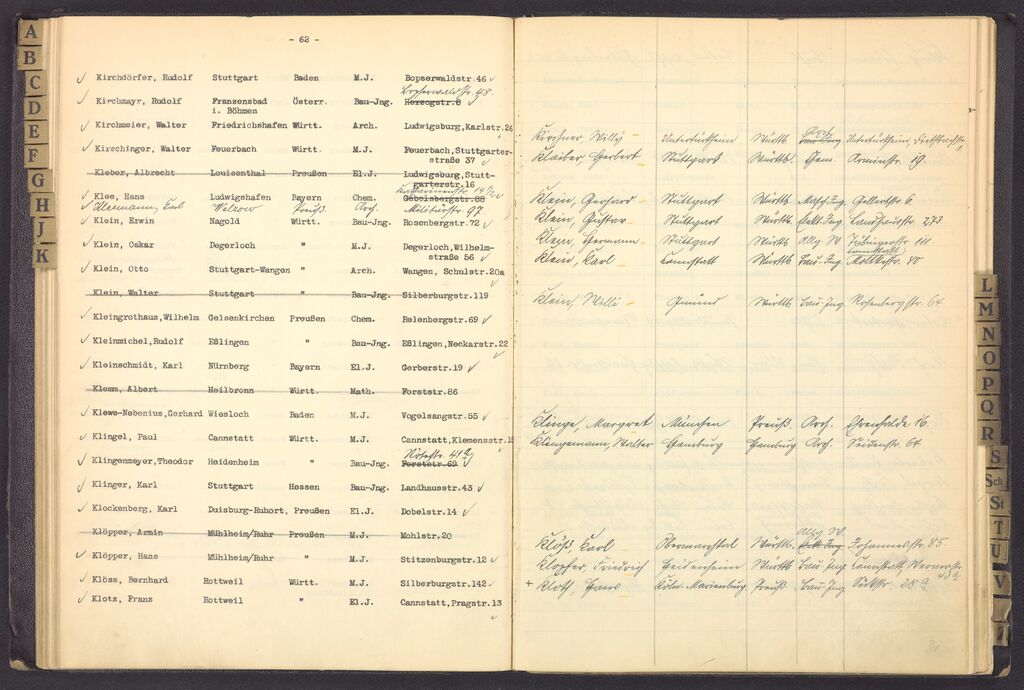 A
B
C
D
E
F
G
H
J
K
- 62 -
Kirchdörfer, Rudolf Stuttgart Baden M.J. Bopserwaldstr.46
Bopserwaldstr. 48
Kirchmayr, Rudolf Franzensbad Österr. Bau-Jng. Herzogstr.8
i. Böhmen
Kirchmeier, Walter Friedrichshafen Württ. Arch. Ludwigsburg,Karlstr.26
Kirschinger, Walter Feuerbach Württ. M.J. Feuerbach,Stuttgarter-
straße 37
Kleber, Albrecht Louisenthal Preußen El.J. Ludwigsburg,Stutt-
garterstr.16
Katharinenstr. 14
Klee, Hans Ludwigshafen Bayern Chem. Gebelsbergstr.88
Kleemann, Karl Welzow Preuß. Arch. Militärstr. 97
Klein, Erwin Nagold Württ. Bau-Jng. Rosenbergstr.72
Klein, Oskar Degerloch " M.J. Degerloch,Wilhelm-
straße 56
Klein, Otto Stuttgart-Wangen " Arch. Wangen, Schulstr.20a
Klein, Walter Stuttgart " Bau-Jng. Silberburgstr.119
Kleingrothaus,Wilhelm Gelsenkirchen Preußen Chem. Relenbergstr.69
Kleinmichel,Rudolf Eßlingen " Bau-Jng. Eßlingen,Neckarstr.22
Kleinschmidt, Karl Nürnberg Bayern El.J. Gerberstr.19
Klemm, Albert Heilbronn Württ. Math. Forststr.86
Klewe-Nebenius,Gerhard Wiesloch Baden M.J. Vogelsangstr.55
Klingel, Paul Cannstatt Württ. M.J. Cannstatt,Klemensstr.15
Rötestr. 41a
Klingenmeyer,Theodor Heidenheim " Bau-Jng. Forststr.69
Klinger, Karl Stuttgart Hessen Bau-Jng. Landhausstr.43
Klockenberg, Karl Duisburg-Ruhort, Preußen El.J. Dobelstr.14
Klöpper, Armin Mühlheim/Ruhr Preußen M.J. Mohlstr.20
Klöpper, Hans Mühlheim/Ruhr " M.J. Stitzenburgstr.12
Klöss, Bernhard Rottweil Württ. M.J. Silberburgstr.142
Klotz, Franz Rottweil " El.J. Cannstatt,Pragstr.13
Kirchner, Willy Untertürkheim Württb. Arch. Untertürkheim, Dietbachstr. 1
Klaiber, Herbert Stuttgart Württb. Chem. Arminstr. 19.
Klein, Gerhard Stuttgart Württb. Masch.Ing. Gallestr. 6
Klein, Gustav Stuttgart Württb. Elekt.Ing. Landhausstr. 273
Klein, Hermann Stuttgart Württb. Allg. W. Tübingerstr. 111
Klein, Karl Cannstatt Württb. Bau-Ing. Cannstatt Moltkestr. 80
Klein, Willi Gmünd Württb. Bau-Ing. Rosenbergstr. 64
Klinge, Margret München Preuß. Arch. Ehrenhalde 16.
Klingemann, Walter Hamburg Hamburg Arch. Seidenstr. 64
Allg. W.
Klöß, Karl Obermarchtal Württb. Elekt.Ing. Johannesstr. 85
Klopfer, Friedrich Heidenheim Württb. Bau-Ing. Cannstatt, Wernerstr. 43a
+ Kloth, Hans Köln-Marienburg Preuß. Bau-Ing. 38a
L
M
N
O
P
Q
R
S
Sch
St
T
U
V